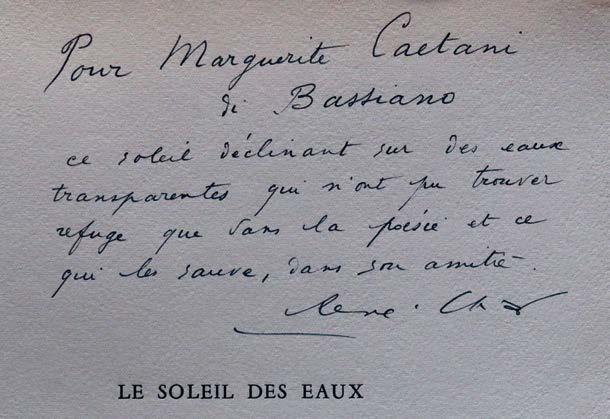 Pour Marguerite Caetani
di Bassiano
ce soleil déclinant sur des eaux
transparentes qui n'ont pu trouver
refuge que dans la poésie et ce
qui les sauve, dans son amitié.
René Char
LE SOLEIL DES EAUX